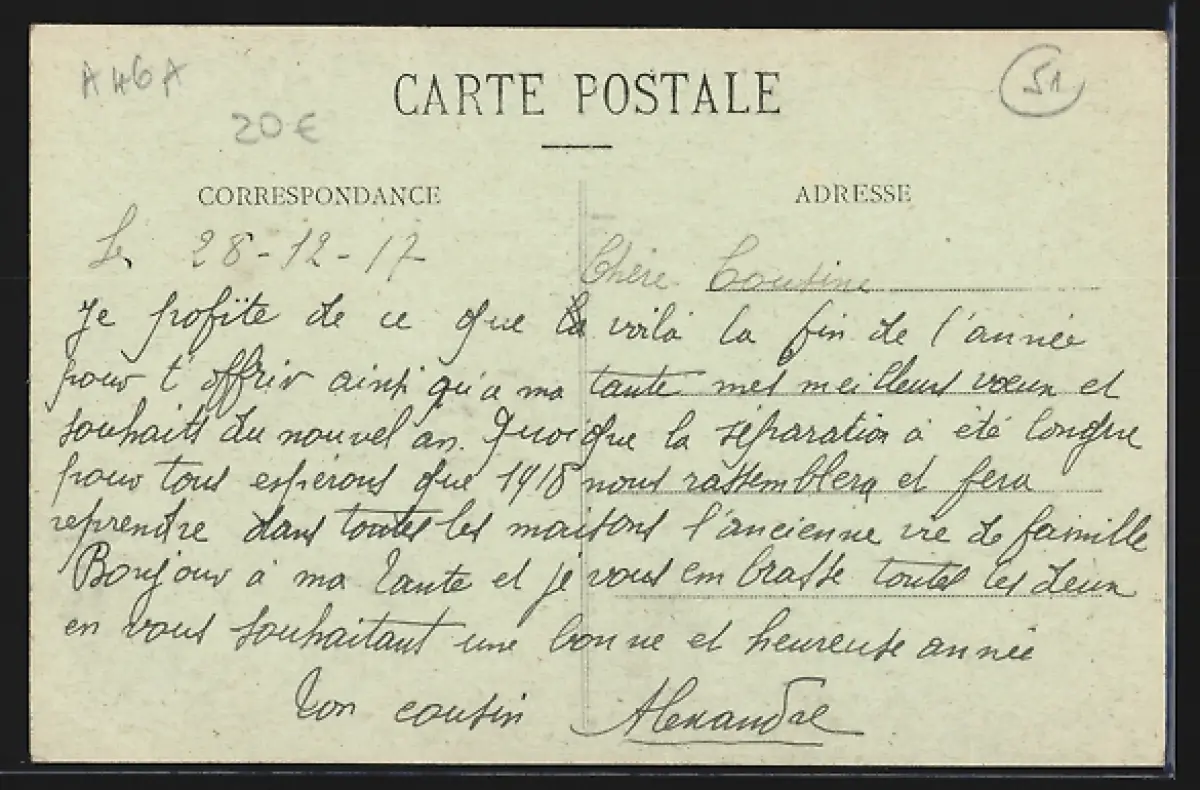 A46A
CARTE POSTALE
51
20€
CORRESPONDANCE
ADRESSE
Le 28-12-17
Chère Cousine
Je profite de ce que voilà la fin de l'année
pour t'offrir ainsi qu'a ma tante mes meilleurs vœux et
souhaits du nouvel an. Quoique la séparation a été longue
pour tous espérons que 1918 nous rassemblera et fera
reprendre dans toutes les maisons l'ancienne vie de famille
Bonjour à ma Tante et je vous embrasse toutes les deux
en vous souhaitant une bonne et heureuse année
Ton cousin Alexandre